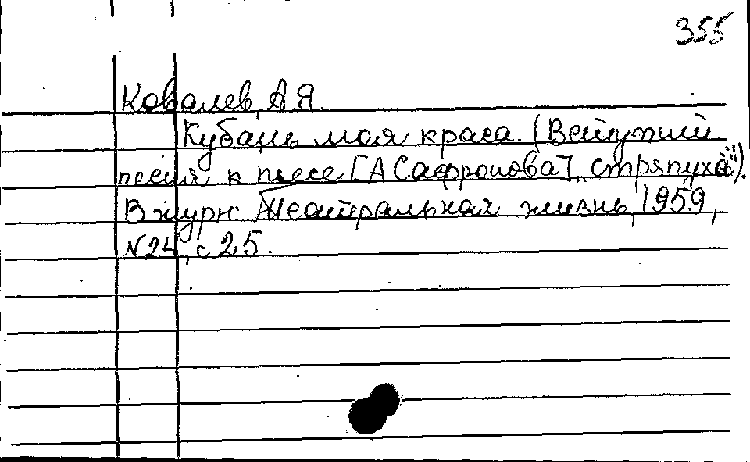 355
Ковалев, А.Я.
Кубань моя краса. (
песня к пьесе [А Сафронова], "Стряпуха").
В журн. Театральная жизнь, 1959,
№24, с 25.